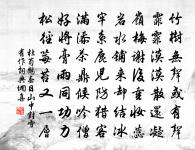 竹樹無聲或有聲
霏霏漠漠散還凝
嶺梅謝後重妝蕊
岩水鋪來卻結冰
牢繫鹿兒防獵客
滿添茶鼎候吟僧
好將膏雨同功力
松徑莓苔又一層
杜荀鶴春日山中對雪
有作詞典網集